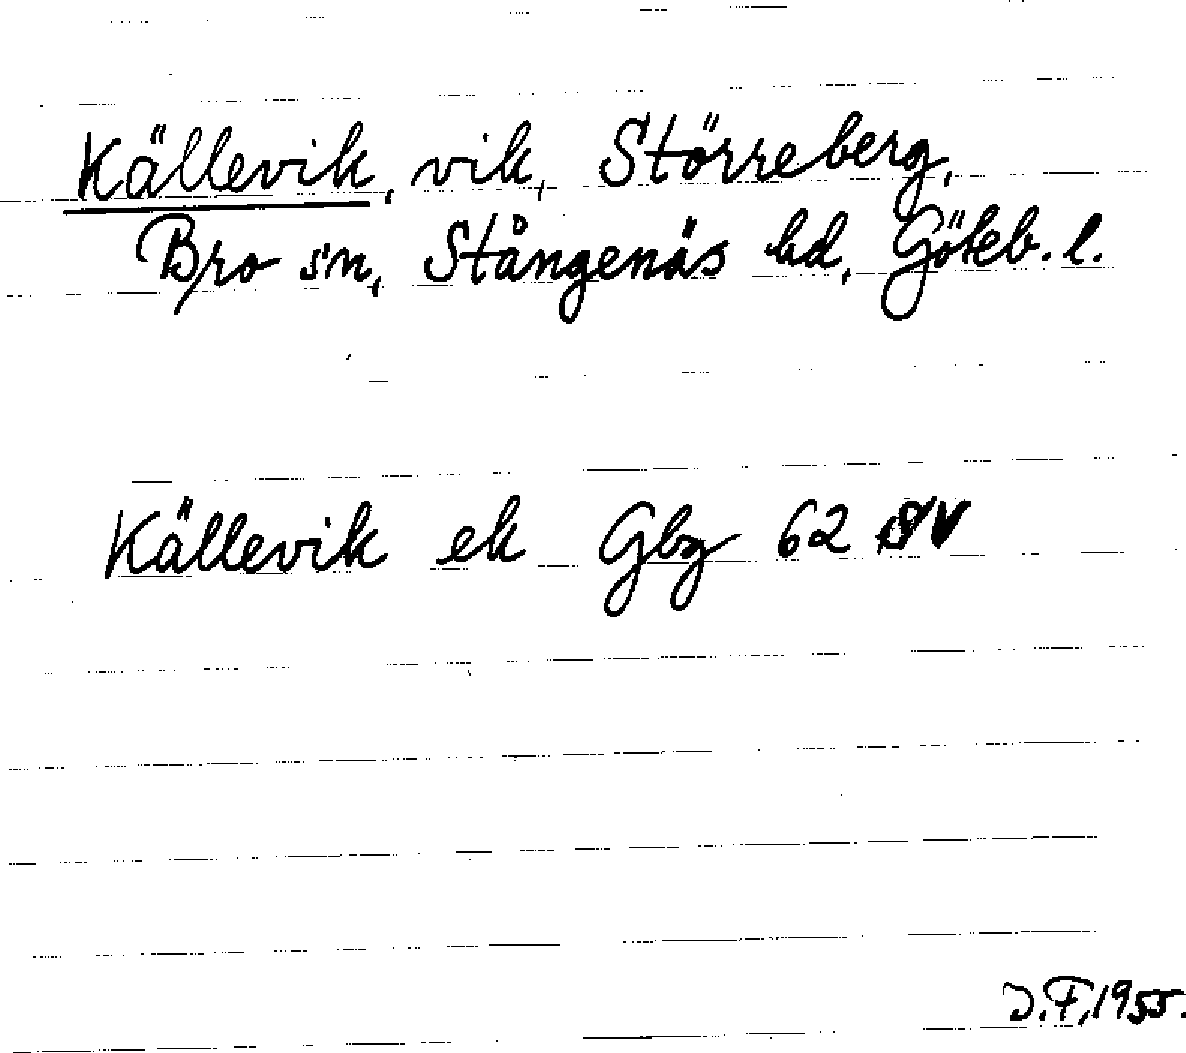 Källevik, vik, Störreberg,
Bro sn, Stångenäs hd, Göteb. l.
Källevik ek Gbg 62 SV
D.F, 1955.